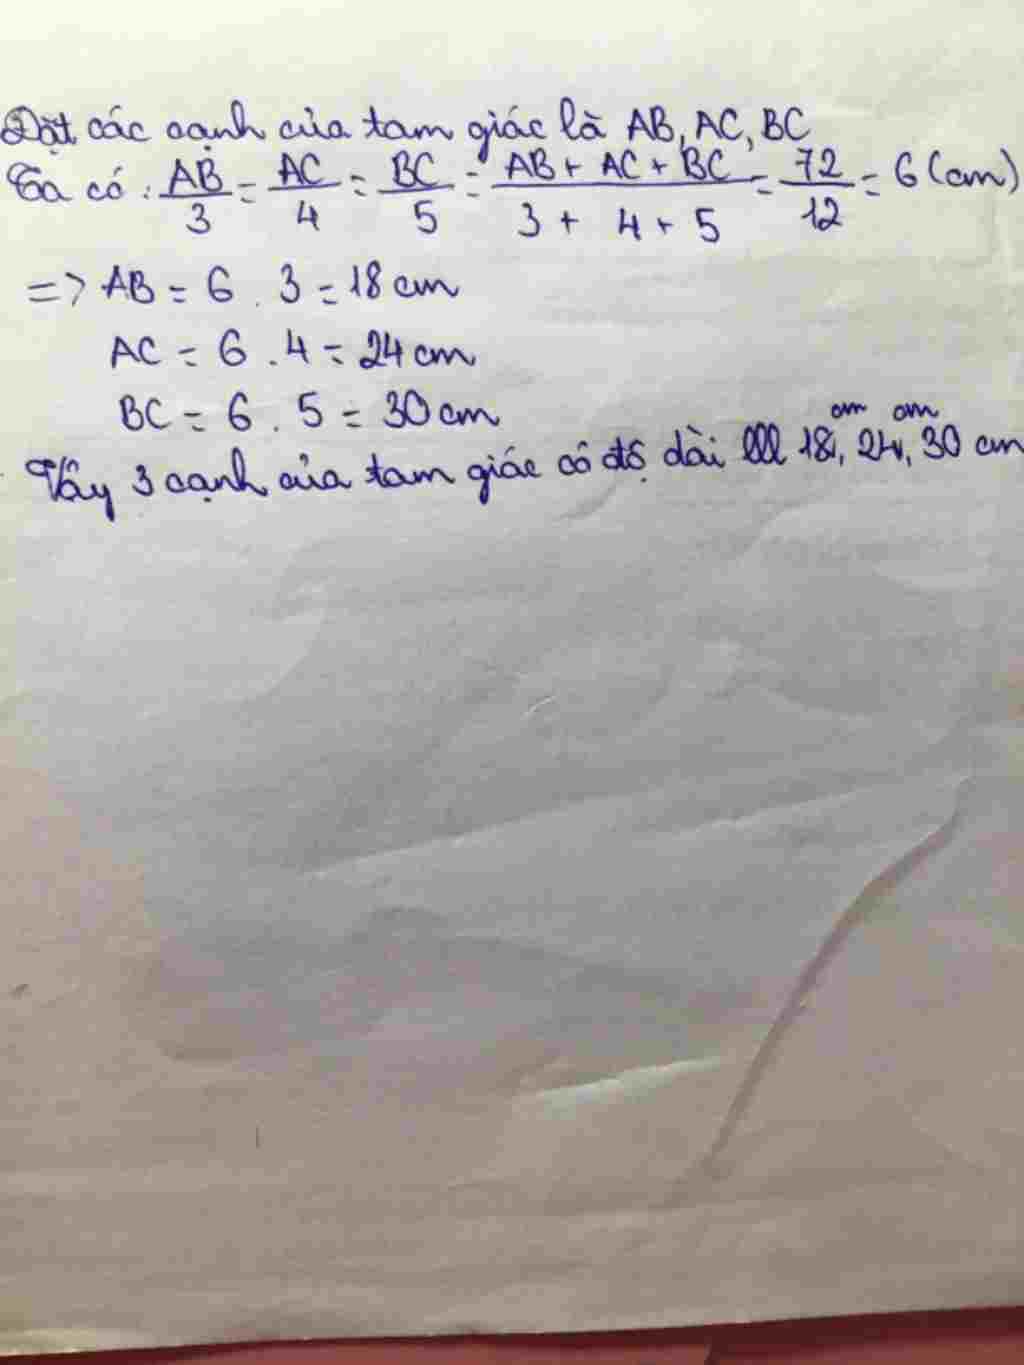 Đặt các cạnh của tam giác là AB, AC, BC
Ta có: AB/3 = AC/4 = BC/5 = AB + AC + BC/3 + 4 + 5 = 72/12 = 6 (cm)
=> AB = 6 . 3 = 18 cm
AC = 6 . 4 = 24 cm
BC = 6 . 5 = 30 cm
Vậy 3 cạnh của tam giác có độ dài 18 cm, 24 cm, 30 cm